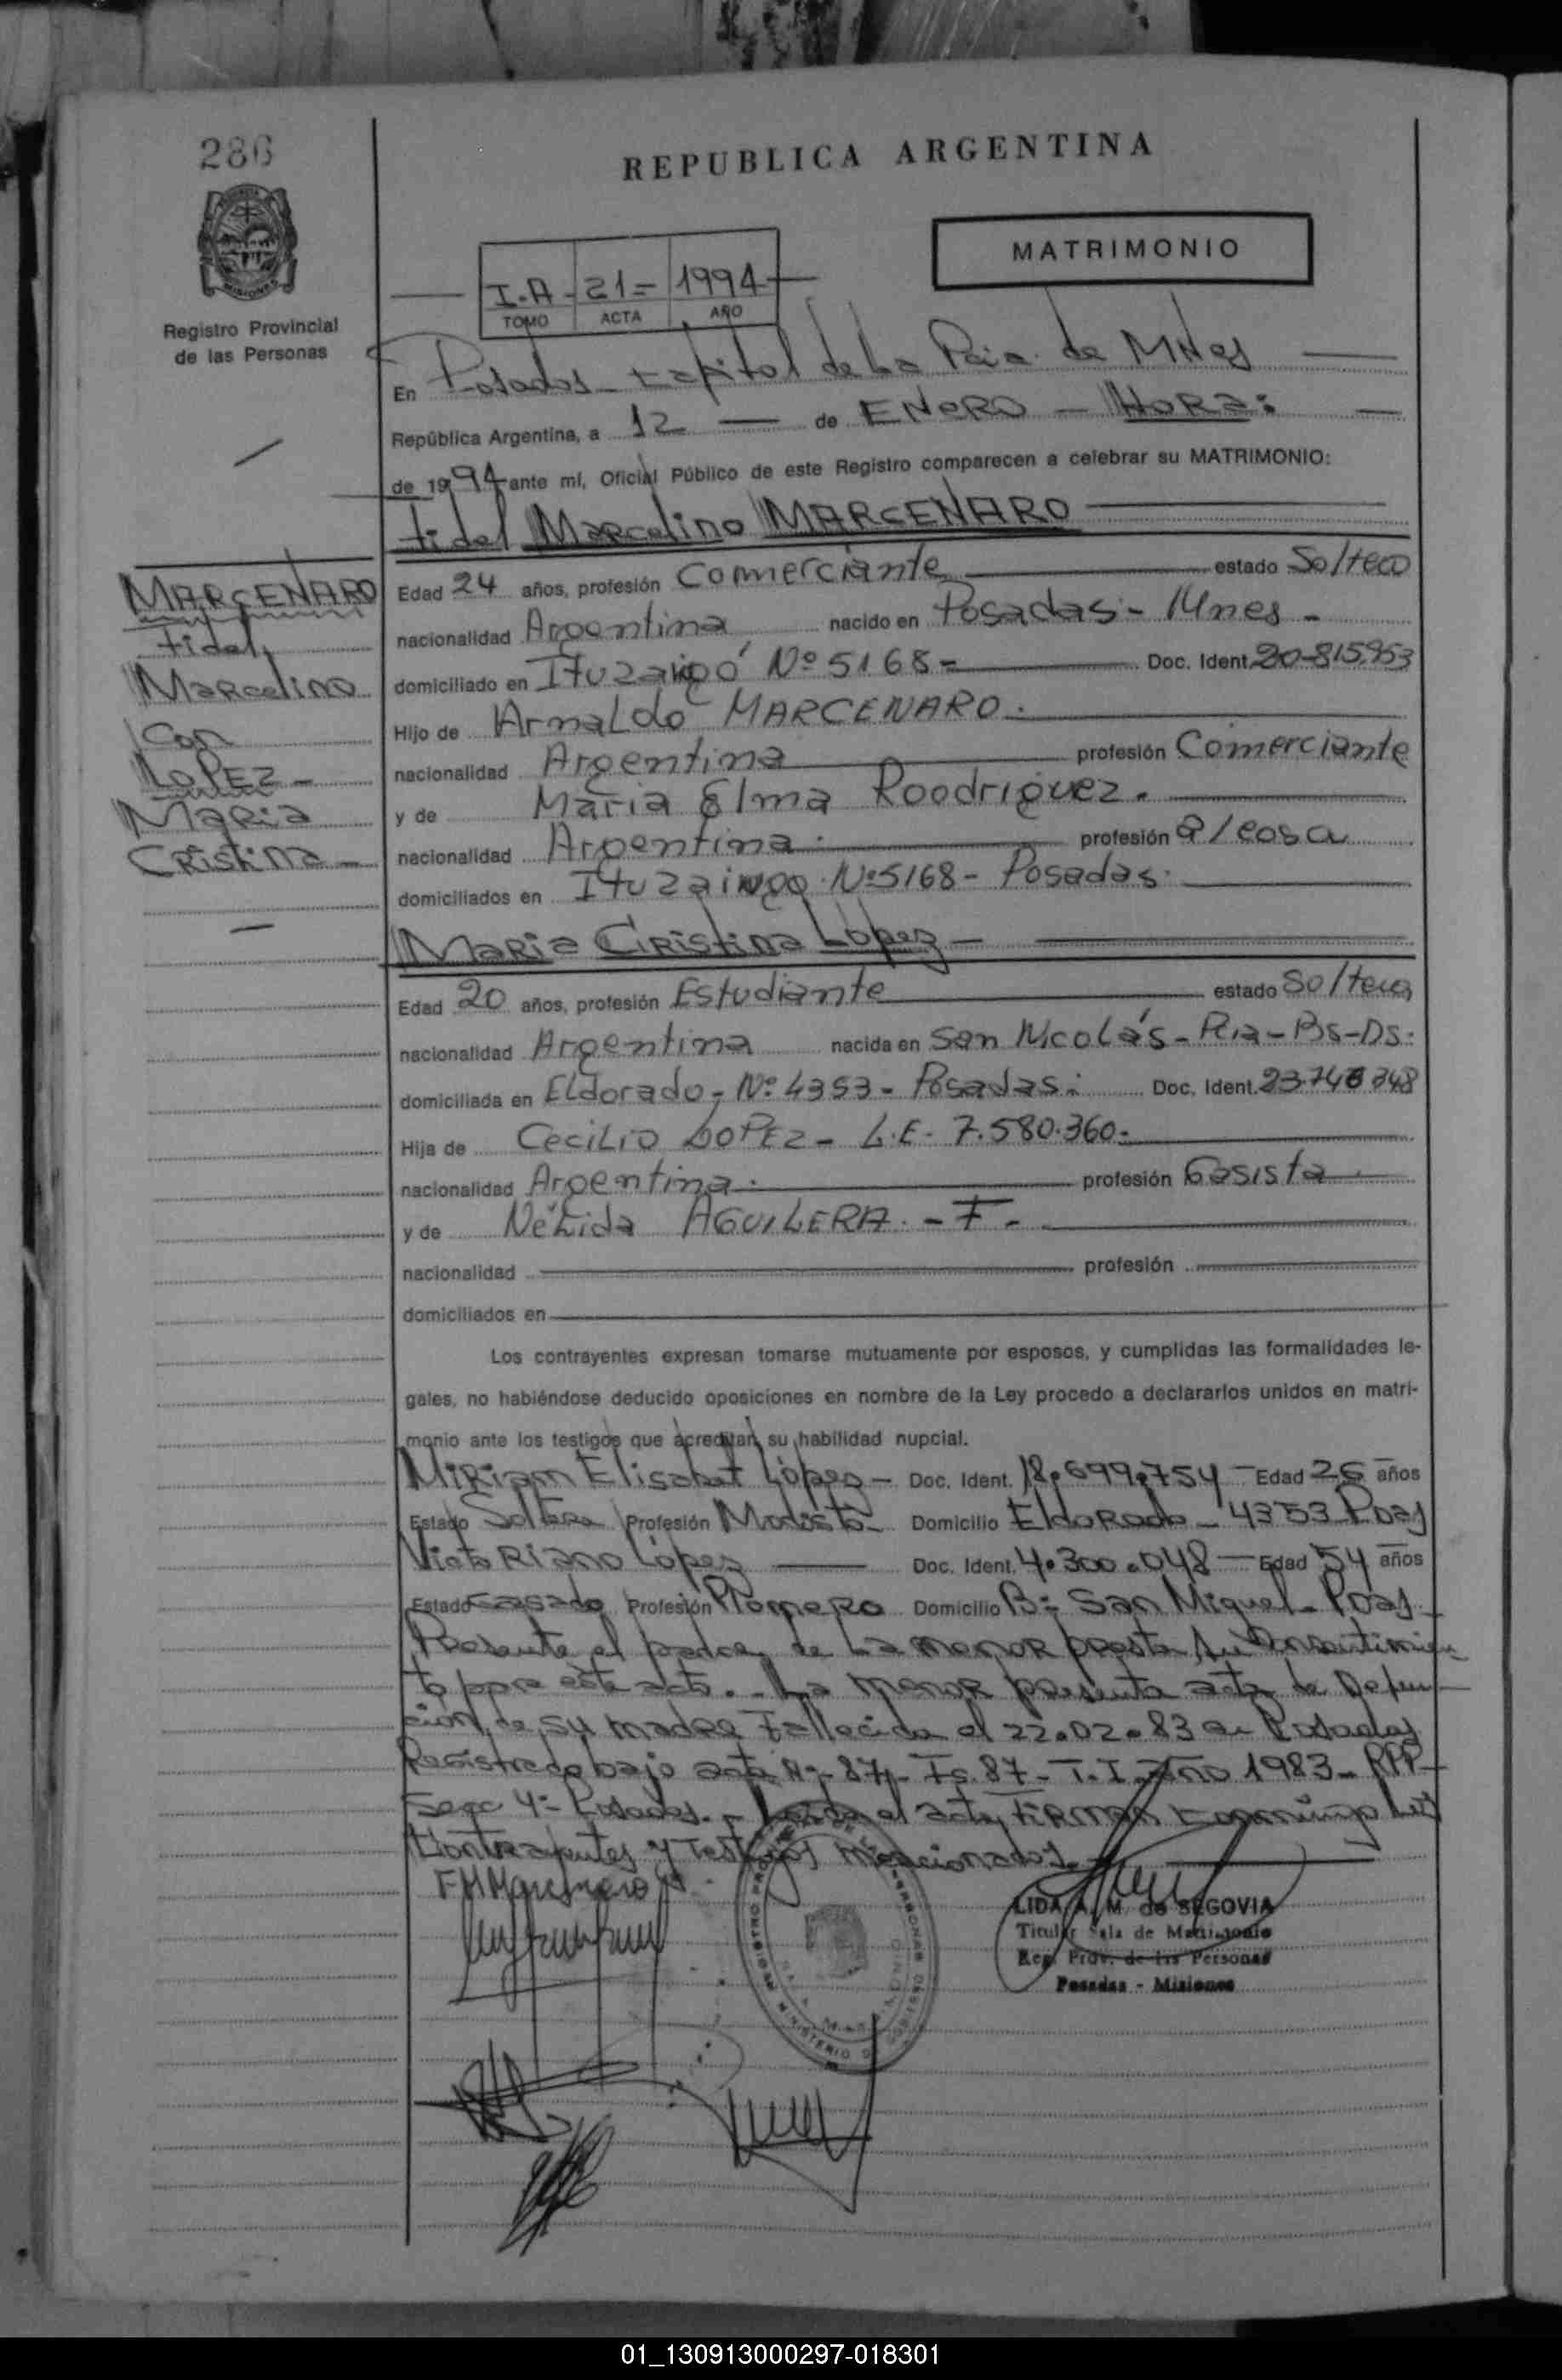 286
REPUBLICA ARGENTINA
MATRIMONIO
I.A - 21 = 1994
TOMO ACTA AÑO
Registro Provincial
de las Personas
En Posadas - Capital de La Pcia. de MNes
República Argentina, a 12 — de ENERO - HORA:
de 1994 ante mí, Oficial Público de este Registro comparecen a celebrar su MATRIMONIO:
Fidel Marcelino MARCENARO
MARCENARO
Fidel
Marcelino
Con
LOPEZ -
Maria
Cristina -
Edad 24 años, profesión Comerciante estado Soltero
nacionalidad Argentina nacido en Posadas - Mnes -
domiciliado en Ituzaingó Nº 5168 = Doc. Ident. 20-815.953
Hijo de Arnaldo MARCENARO.
nacionalidad Argentina profesión Comerciante
y de Maria Elma Roodriguez.
nacionalidad Argentina. profesión q/cosa
domiciliados en Ituzaingo Nº 5168 - Posadas
Maria Cristina Lopez -
Edad 20 años, profesión Estudiante estado Soltera
nacionalidad Argentina nacida en San Nicolás - Pcia - Bs - As.
domiciliada en Eldorado - Nº 4353 - Posadas. Doc. Ident. 23.748 348
Hija de Cecilio LOPEZ - L.E. 7.580.360.
nacionalidad Argentina. profesión Gasista
y de Nélida AGUILERA. - F -
nacionalidad profesión
domiciliados en
Los contrayentes expresan tomarse mutuamente por esposos, y cumplidas las formalidades le-
gales, no habiéndose deducido oposiciones en nombre de la Ley procedo a declararlos unidos en matri-
monio ante los testigos que acreditan su habilidad nupcial.
Miriam Elisabet López - Doc. Ident. 18.699.754 - Edad 26 años
Estado Soltera Profesión Modista - Domicilio Eldorado - 4353 Pdas
Victoriano López Doc. Ident. 4.300.048 - Edad 54 años
Estado Casado Profesión Plomero Domicilio Bº San Miguel - Pdas.
Presente el padre de La menor presta su Consentimien
to para este acto. - La menor presenta acta de Defun-
cion de su madre Fallecida el 22.02.83 en Posadas
Registrada bajo acta Nº 87 - Fº 87 - T. I. Año 1983 - RPP -
Secc 4º Posadas. - Leida el acta, FIRMAN Conmigo los
Contrayentes y Testigos Mencionados.
LIDA A. M. de SEGOVIA
Titular Sala de Matrimonio
Reg. Prov. de las Personas
Posadas - Misiones
01_130913000297-018301